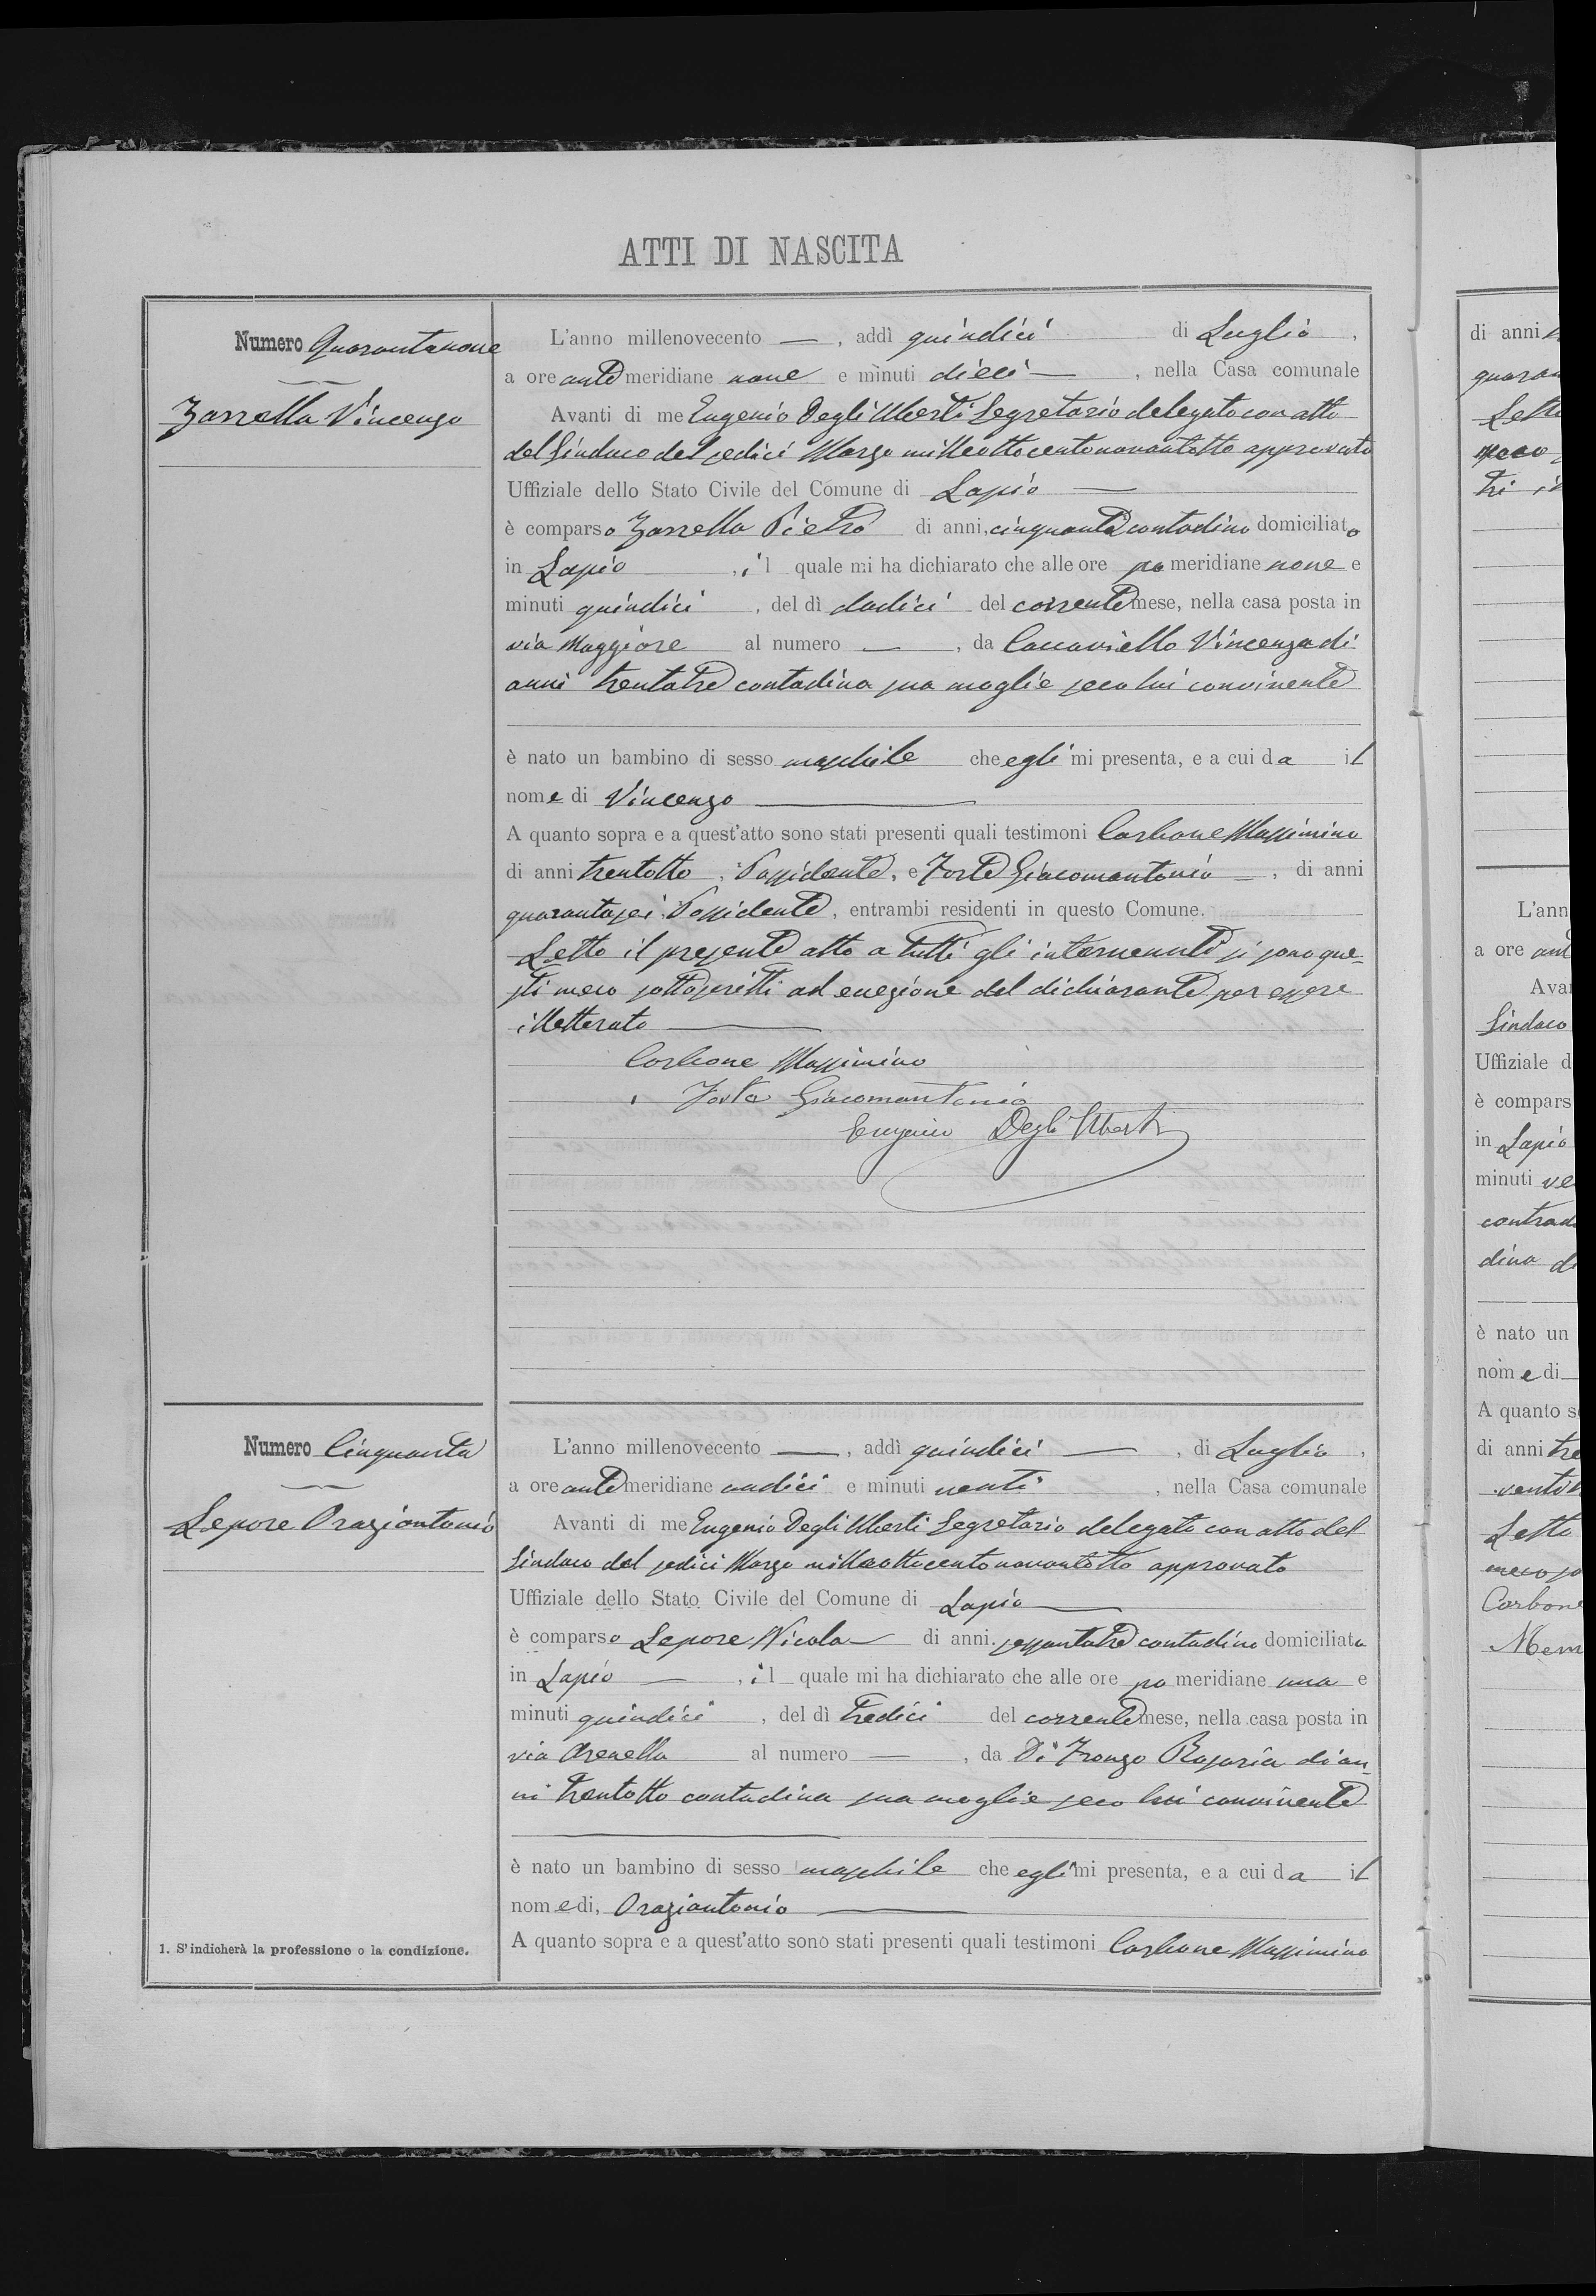 ATTI DI NASCITA
Numero Quarantanove
Zarrella Vincenzo
L'anno millenovecento —, addì quindici di Luglio,
a ore antemeridiane nove e minuti dieci —, nella Casa comunale
Avanti di me Eugenio Degli Uberti Segretario delegato con atto
del Sindaco del sedici Marzo milleottocentonovantotto approvato
Uffiziale dello Stato Civile del Comune di Lapio —
è comparso Zarrella Pietro di anni, cinquanta contadino domiciliato
in Lapio, il quale mi ha dichiarato che alle ore pomeridiane nove e
minuti quindici, del dì dodici del corrente mese, nella casa posta in
via Maggiore al numero —, da Caccaviello Vincenza di
anni trentatre contadina sua moglie seco lui convivente
è nato un bambino di sesso maschile che egli mi presenta, e a cui da il
nome di Vincenzo —
A quanto sopra e a quest'atto sono stati presenti quali testimoni Carbone Massimino
di anni trentotto, Possidente, e Forte Giacomantonio —, di anni
quarantasei, Possidente, entrambi residenti in questo Comune.
Letto il presente atto a tutti gli intervenuti si sono que-
sti meco sottoscritti ad eccezione del dichiarante per essere
illetterato —
Carbone Massimino
Forte Giacomantonio
Eugenio Degli Uberti
Numero Cinquanta
Lepore Oraziantonio
L'anno millenovecento —, addì quindici —, di Luglio,
a ore antemeridiane undici e minuti venti, nella Casa comunale
Avanti di me Eugenio Degli Uberti Segretario delegato con atto del
Sindaco del sedici Marzo milleottocentonovantotto approvato
Uffiziale dello Stato Civile del Comune di Lapio —
è comparso Lepore Nicola — di anni. sessantatre contadino domiciliato
in Lapio —, il quale mi ha dichiarato che alle ore pomeridiane una e
minuti quindici, del dì tredici del corrente mese, nella casa posta in
via Arenella al numero —, da Di Fronzo Rosaria di an-
ni trentotto contadina sua moglie seco lui convivente
è nato un bambino di sesso maschile che egli mi presenta, e a cui da il
nome di, Oraziantonio —
A quanto sopra e a quest'atto sono stati presenti quali testimoni Carbone Massimino
1. S'indicherà la professione o la condizione.
di anni
Letto
meco
L'ann
a ore ant
Ava
Sindaco
Uffiziale d
è compars
in Lapio
minuti ve
contrad
dina d
è nato un
nome di
A quanto s
di anni tre
Letto
meco so
Carbone